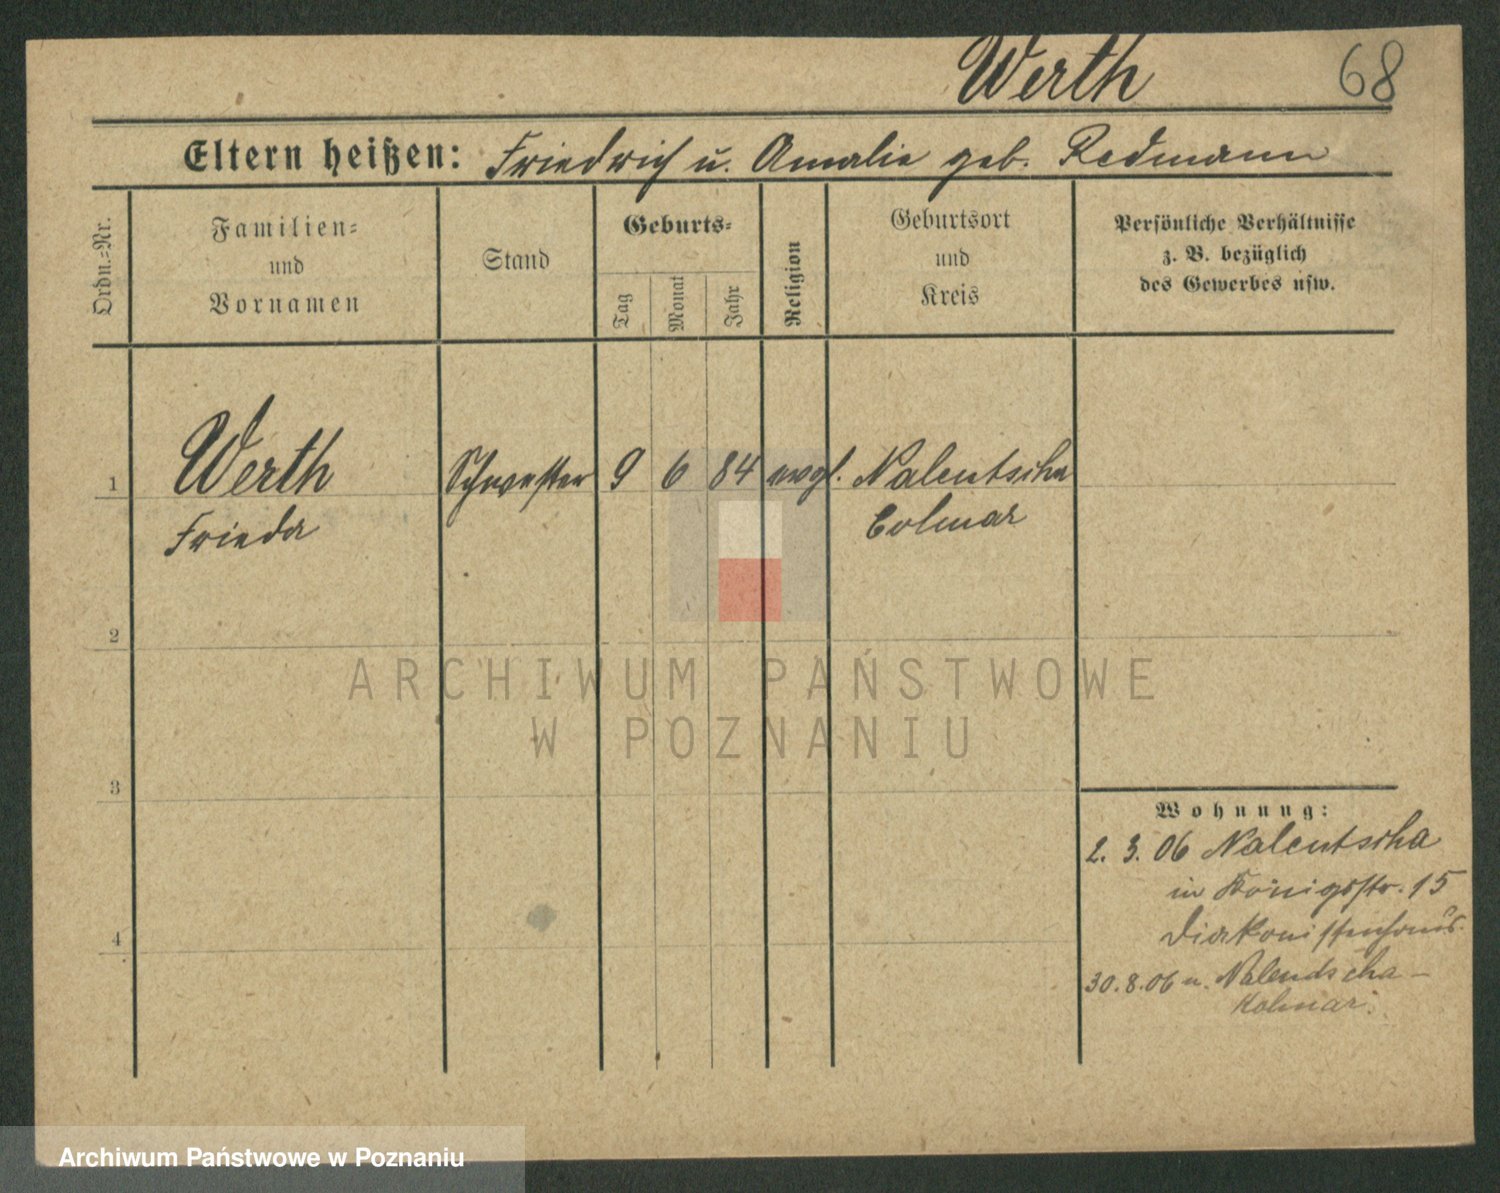 Werth 68
Eltern heißen: Friedrich u. Amalie geb. Redmann
Ordn.-Nr.
Familien-
und
Vornamen
Stand
Geburts-
Tag
Monat
Jahr
Religion
Geburtsort
und
Kreis
Persönliche Verhältnisse
z. B. bezüglich
des Gewerbes usw.
1 Werth Schwester 9 6 84 evgl. Nalentscha
Frieda Colmar
2
3
4
Wohnung:
2. 3. 06 Nalentscha
in Königsstr. 15
Diakonissenhaus.
30.8.06 n. Nalendscha-
Kolmar.
ARCHIWUM PAŃSTWOWE
W POZNANIU
Archiwum Państwowe w Poznaniu